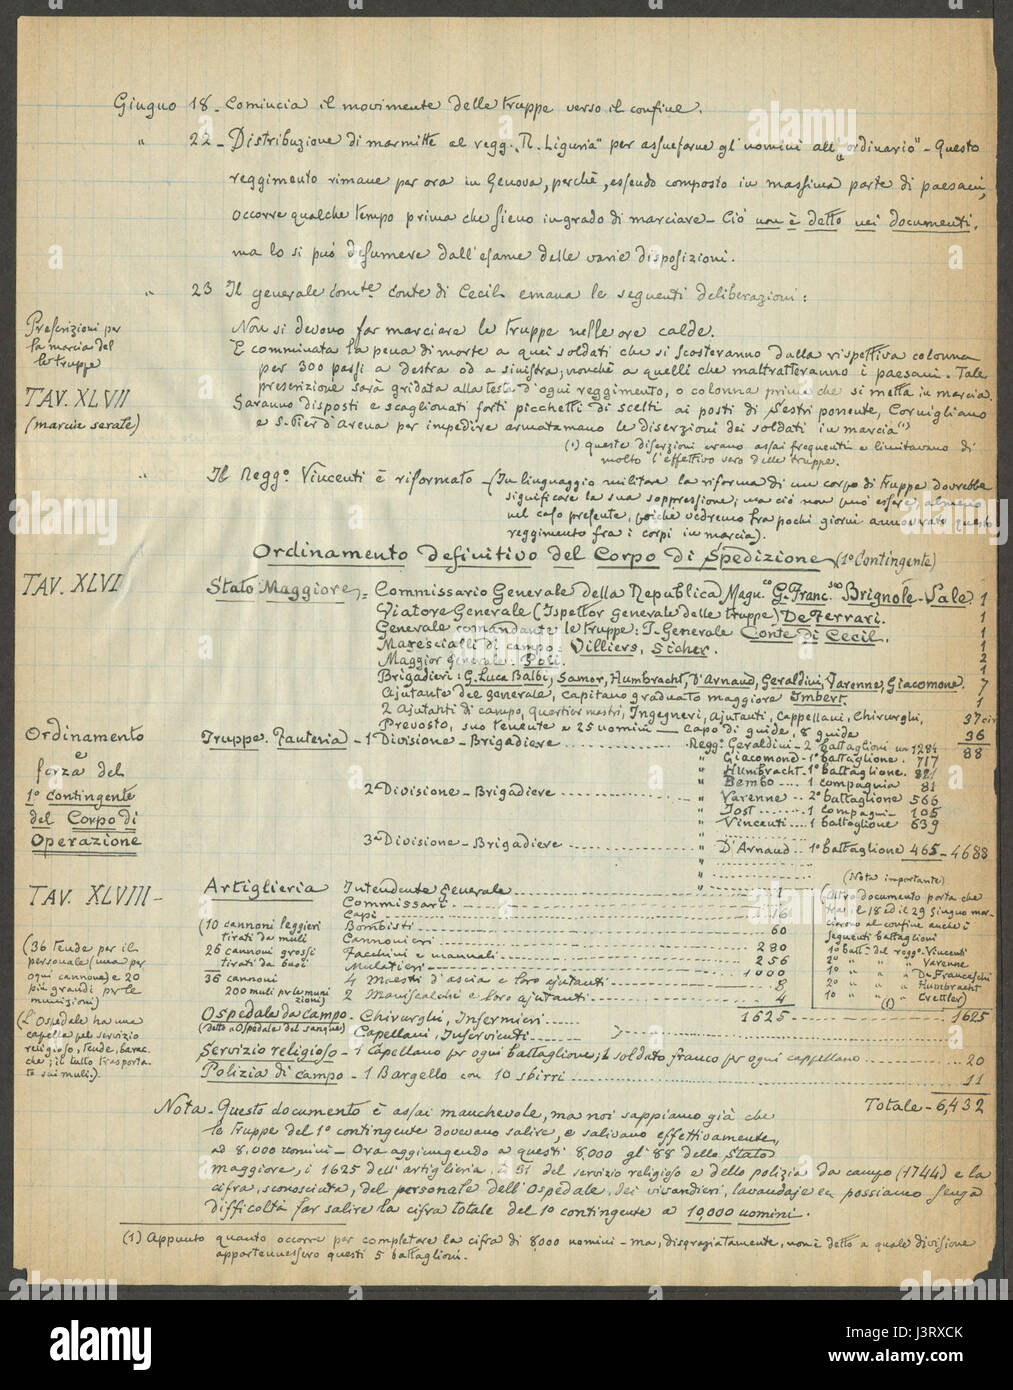 Giugno 18 - Comincia il movimento delle truppe verso il confine.
" 22 - Distribuzione di marmitte al regg. "R. Liguria" per assuefarne gl'uomini all'"ordinario" - Questo
reggimento rimane per ora in Genova, perchè, essendo composto in massima parte di paesani,
occorre qualche tempo prima che sieno in grado di marciare - Ciò non è detto nei documenti,
ma lo si può desumere dall'esame delle varie disposizioni.
" 23 Il generale comte. conte di Cecil emana le seguenti deliberazioni:
Prescrizioni per
la marcia del
le truppe
TAV. XLVII
(marcie serate)
Non si devono far marciare le truppe nelle ore calde.
È comminata la pena di morte a quei soldati che si scosteranno dalla rispettiva colonna
per 300 passi a destra od a sinistra; nonchè a quelli che maltratteranno i paesani. Tale
prescrizione sarà gridata alla testa d'ogni reggimento, o colonna prima che si metta in marcia.
Saranno disposti e scaglionati forti picchetti di scelti ai posti di Sestri ponente, Cornigliano
e S. Pier d'Arena per impedire armatamano le diserzioni dei soldati in marcia (1)
(1) queste diserzioni erano assai frequenti e limitavano di
molto l'effettivo vero delle truppe.
" Il Regg.o Vincenti è riformato - (In linguaggio militare la riforma di un corpo di truppe dovrebbe
significare la sua soppressione; ma ciò non può essere almeno
nel caso presente, poichè vedremo fra pochi giorni annoverato questo
reggimento fra i corpi in marcia).
Ordinamento definitivo del Corpo di Spedizione - (1º Contingente)
TAV. XLVI
Stato Maggiore - Commissario Generale della Repubblica Magn.co G. Franc.sco Brignole-Sale 1
Viatore Generale (Ispettor generale delle truppe) De Ferrari. 1
Generale comandante le truppe: T. Generale Conte di Cecil. 1
Marescialli di campo: Villiers, Sicher.
Maggior generale: Poli. 2
Brigadieri: G. Luca Balbi, Samor, Humbracht, D'Arnaud, Geraldini, Varenne, Giacomone. 7
Ajutante del generale, capitano graduato maggiore Imbert. 1
2 Ajutanti di campo, quartier mastri, Ingegneri, ajutanti, Cappellani, Chirurghi, 37 cir
Prevosto, suo tenente e 25 uomini - Capo di guide, 8 guide 36
88
Ordinamento
e
forza del
1º contingente
del Corpo di
Operazione
Truppe. Fanteria - 1ª Divisione - Brigadiere Regg.o Geraldini - 2 battaglioni un 1284
" Giacomone - 1º battaglione. 717
" Humbracht - 1º battaglione. 821
" Bembo 1 compagnia 81
2ª Divisione - Brigadiere " Varenne - 2º battaglione 566
" Jost 1 compagni- 105
" Vincenti 1 battaglione 639
3ª Divisione - Brigadiere " D'Arnaud - 1º battaglione 465 - 4688
TAV. XLVIII -
(36 tende per il
personale (una per
ogni cannone) e 20
più grandi per le
munizioni)
(L'Ospedale ha una
capella pel servizio
religioso, tende, barac-
che; il tutto trasporta-
to sui muli).
Artiglieria
(10 cannoni leggieri
tirati da muli
26 cannoni grossi
tirati da buoi
36 cannoni
200 muli per le muni
zioni)
Intendente generale 1
Commissari
Capi 16
Bombisti 60
Cannonieri 280
Facchini e manuali 256
Mulatieri 1000
4 Maestri d'ascia e loro ajutanti 8
2 Maniscalchi e loro ajutanti 4
(Nota importante)
(Altro documento porta che
tra il 18 ed il 29 Giugno mar-
ciarono al confine anche i
seguenti battaglioni
1º batt. del regg.o Vincenti
2º " " " Varenne
1º " " " De Franceschi
2º " " " Humbracht
1º " " " Crettler)
(1)
Ospedale da campo - Chirurghi, Infermieri 1625 1625
(detto "Ospedale del sangue) Capellani, Inservienti
Servizio religioso - 1 Capellano per ogni battaglione; 1 soldato franco per ogni cappellano 20
Polizia di campo - 1 Bargello con 10 sbirri 11
Totale - 6,432
Nota - Questo documento è assai manchevole, ma noi sappiamo già che
le truppe del 1º contingente dovevano salire, e salivano effettivamente,
ad 8.000 uomini - Ora aggiungendo a questi 8,000 gl'88 dello Stato
Maggiore, i 1625 dell'artiglieria, i 31 del servizio religioso e della polizia da campo (1744) e la
cifra, sconosciuta, del personale dell'Ospedale, dei vivandieri, lavandaje ecc possiamo senza
difficoltà far salire la cifra totale del 1º contingente a 10,000 uomini.
(1) Appunto quanto occorre per completare la cifra di 8,000 uomini - ma, disgraziatamente, non è detto a quale divisione
appartenessero questi 5 battaglioni.
alamy
Image ID: J3RXCK
www.alamy.com